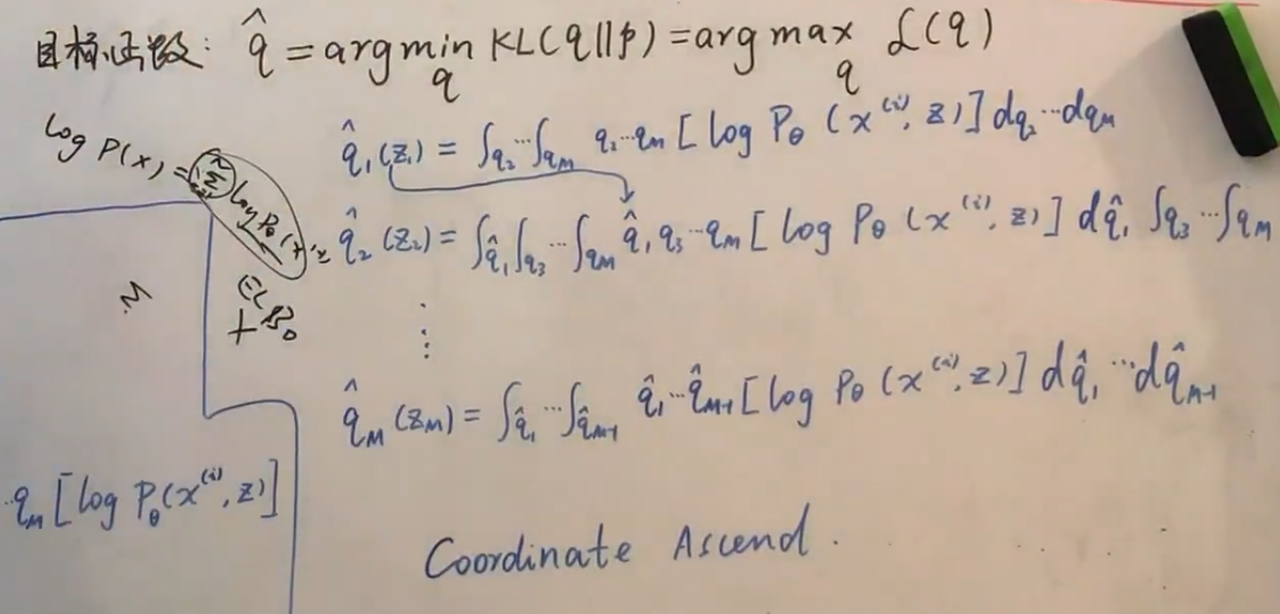 目标函数: q̂ = argmin_q KL(q||p) = argmax_q ℒ(q)
log P(x) = Σ log Pθ(x
q̂₁(z₁) = ∫q₂ ⋯ ∫qₘ q₂⋯qₘ [log Pθ(x⁽ⁱ⁾, z)] dq₂⋯dqₘ
q̂₂(z₂) = ∫q̂₁ ∫q₃ ⋯ ∫qₘ q̂₁ q₃⋯qₘ [log Pθ(x⁽ⁱ⁾, z)] dq̂₁ ∫q₃ ⋯ ∫qₘ
ELBO
+
⋮
q̂ₘ(zₘ) = ∫q̂₁ ⋯ ∫q̂ₘ₋₁ q̂₁⋯q̂ₘ₋₁ [log Pθ(x⁽ⁱ⁾, z)] dq̂₁⋯dq̂ₘ₋₁
qₘ [log Pθ(x⁽ⁱ⁾, z)]
Coordinate Ascend.